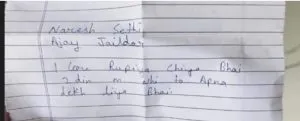 Naresh Sethi
Ajay Jaildar
1 Crore Rupriya Chiye Bhai
2 din m nhi to Apna
dekh liye Bhai